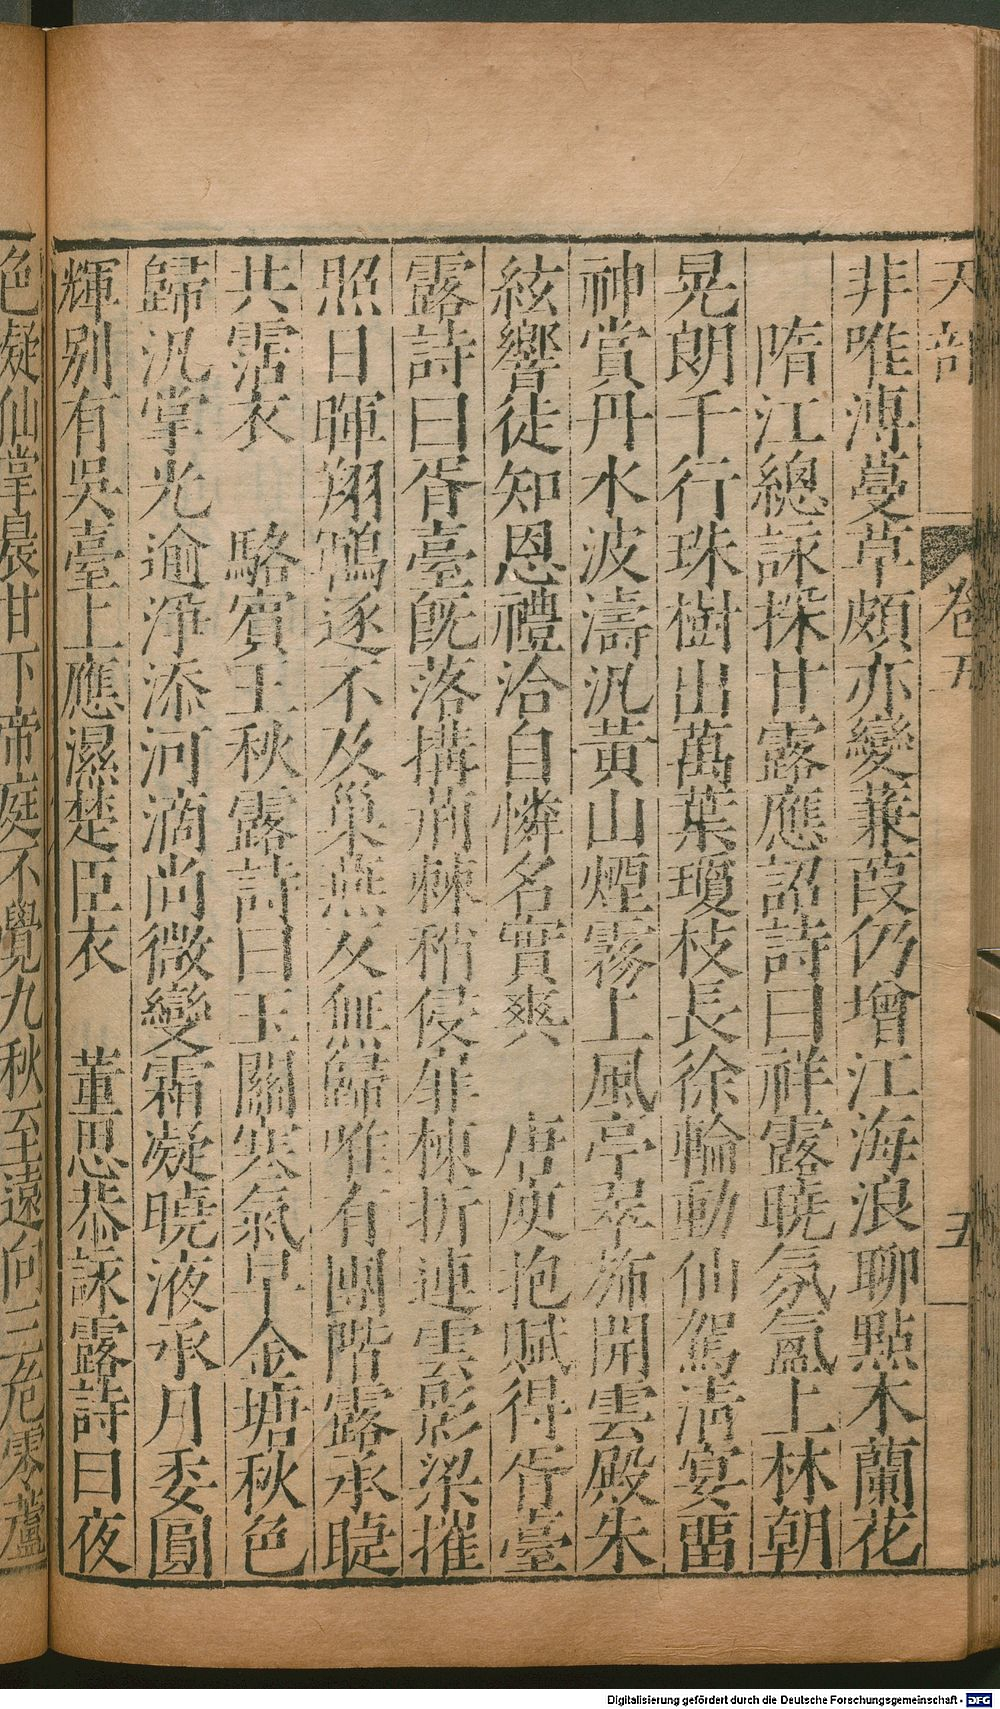 天部 卷五 五
非唯溥蔓草頗亦變蒹葭仍增江海浪聊點木蘭花
隋江總詠採甘露應詔詩曰祥露曉氛氳上林朝
晃朗千行珠樹出萬葉瓊枝長徐輪動仙駕清宴畱
神賞丹水波濤汎黃山煙霧上風亭翠旆開雲殿朱
絃響徒知恩禮洽自憐名實爽 唐庾抱賦得胥臺
露詩曰胥臺既落搆荊棘稍侵扉棟折連雲影梁摧
照日暉翔鵾逐不及巢燕反無歸唯有團階露承睫
共霑衣 駱賓王秋露詩曰玉關寒氣早金塘秋色
歸汎掌光逾淨添河滴尚微變霜凝曉液承月委圓
輝別有吳臺上應濕楚臣衣 董思恭詠露詩曰夜
色凝仙掌晨甘下帝庭不覺九秋至遠向三危零蘆
Digitalisierung gefördert durch die Deutsche Forschungsgemeinschaft - DFG